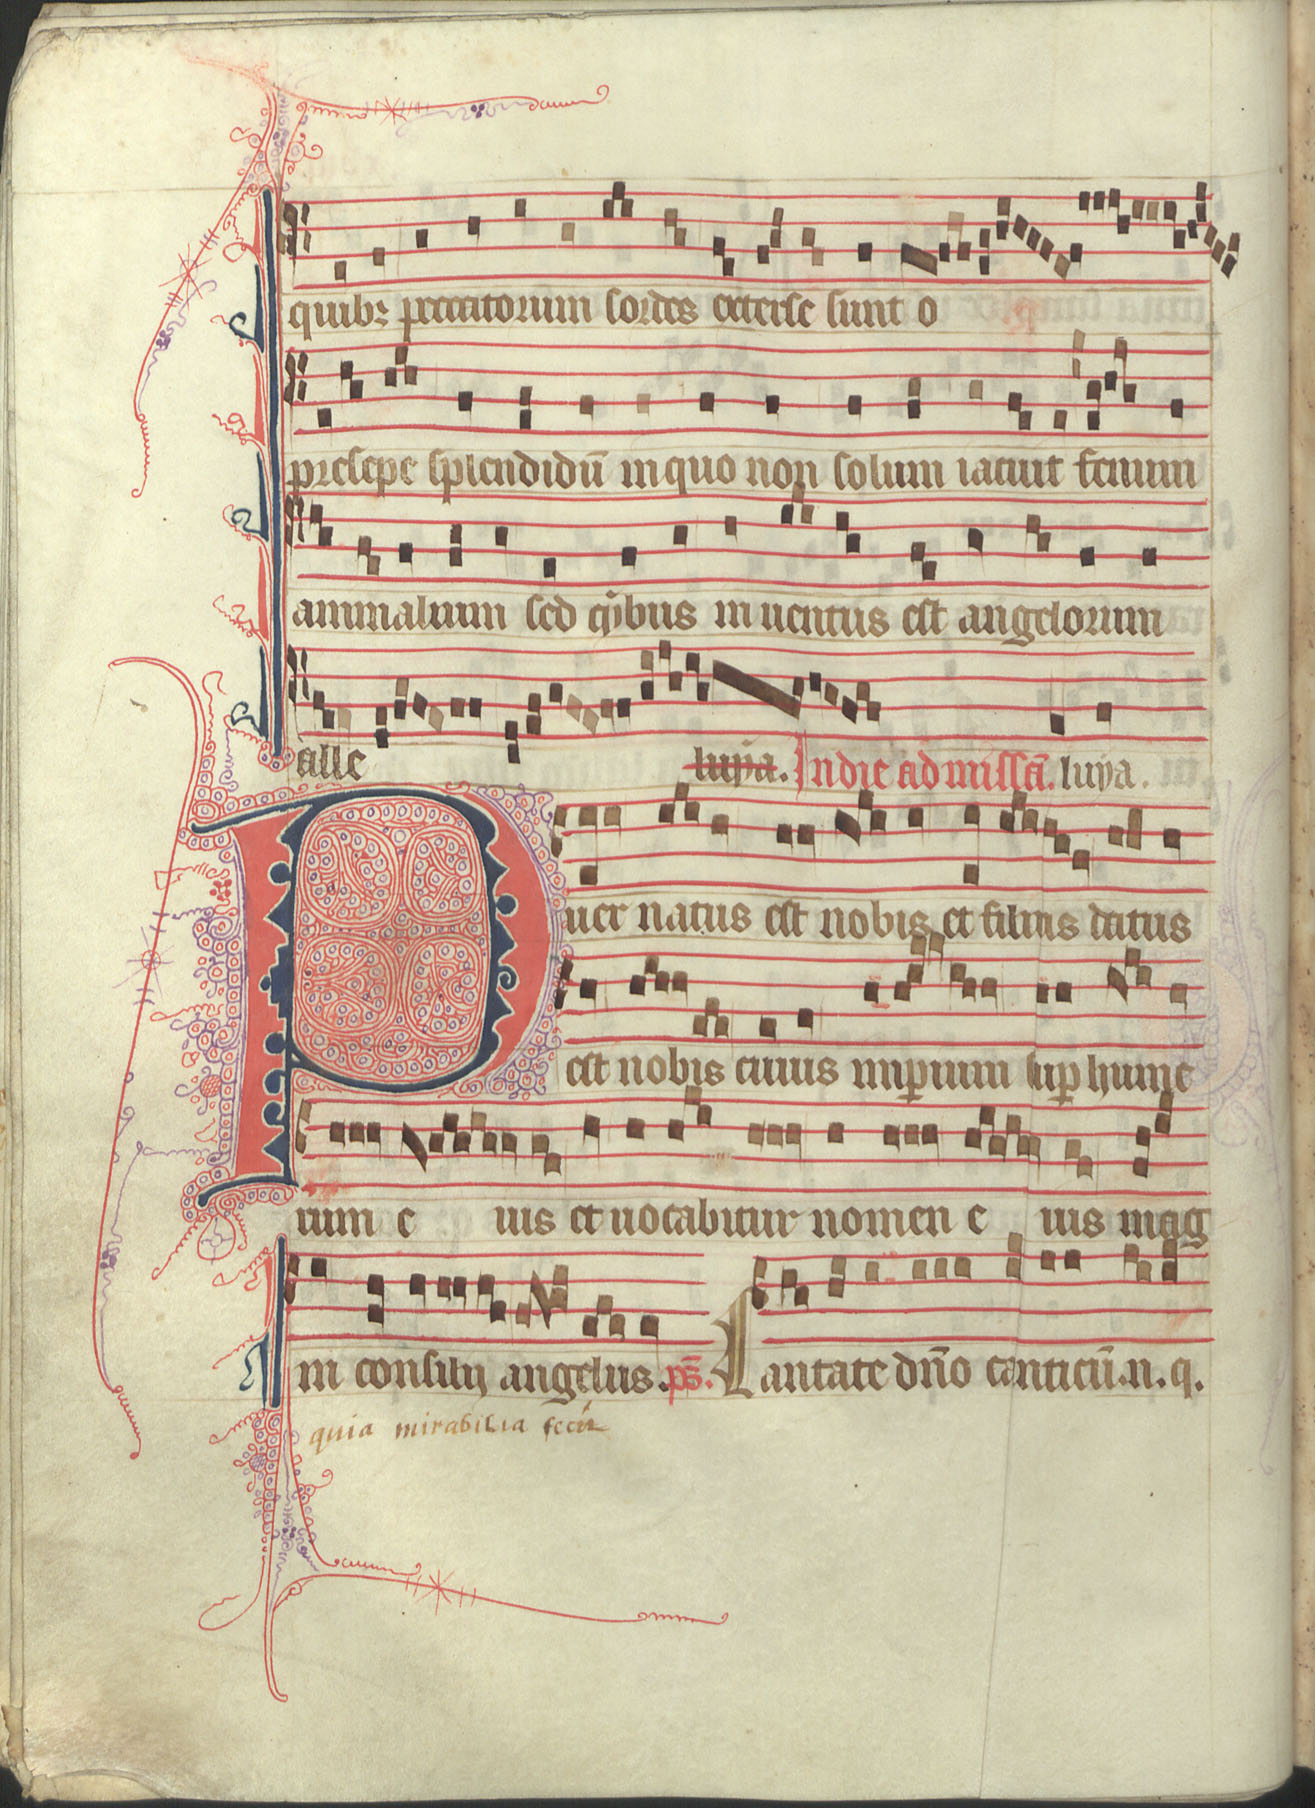 quibꝫ peccatorum sordes exterse sunt o
presepe splendidū in quo non solum iacuit fenum
animalium sed qͥbus inuentus est angelorum
alle luya. In die ad missā. luya.
Puer natus est nobis et filius datus
est nobis cuius imꝑium suꝑ hume
rum e ius et uocabitur nomen e ius mag
ni consilij angelus. p̄s. Cantate dño canticū.n.q.
quia mirabilia fecit